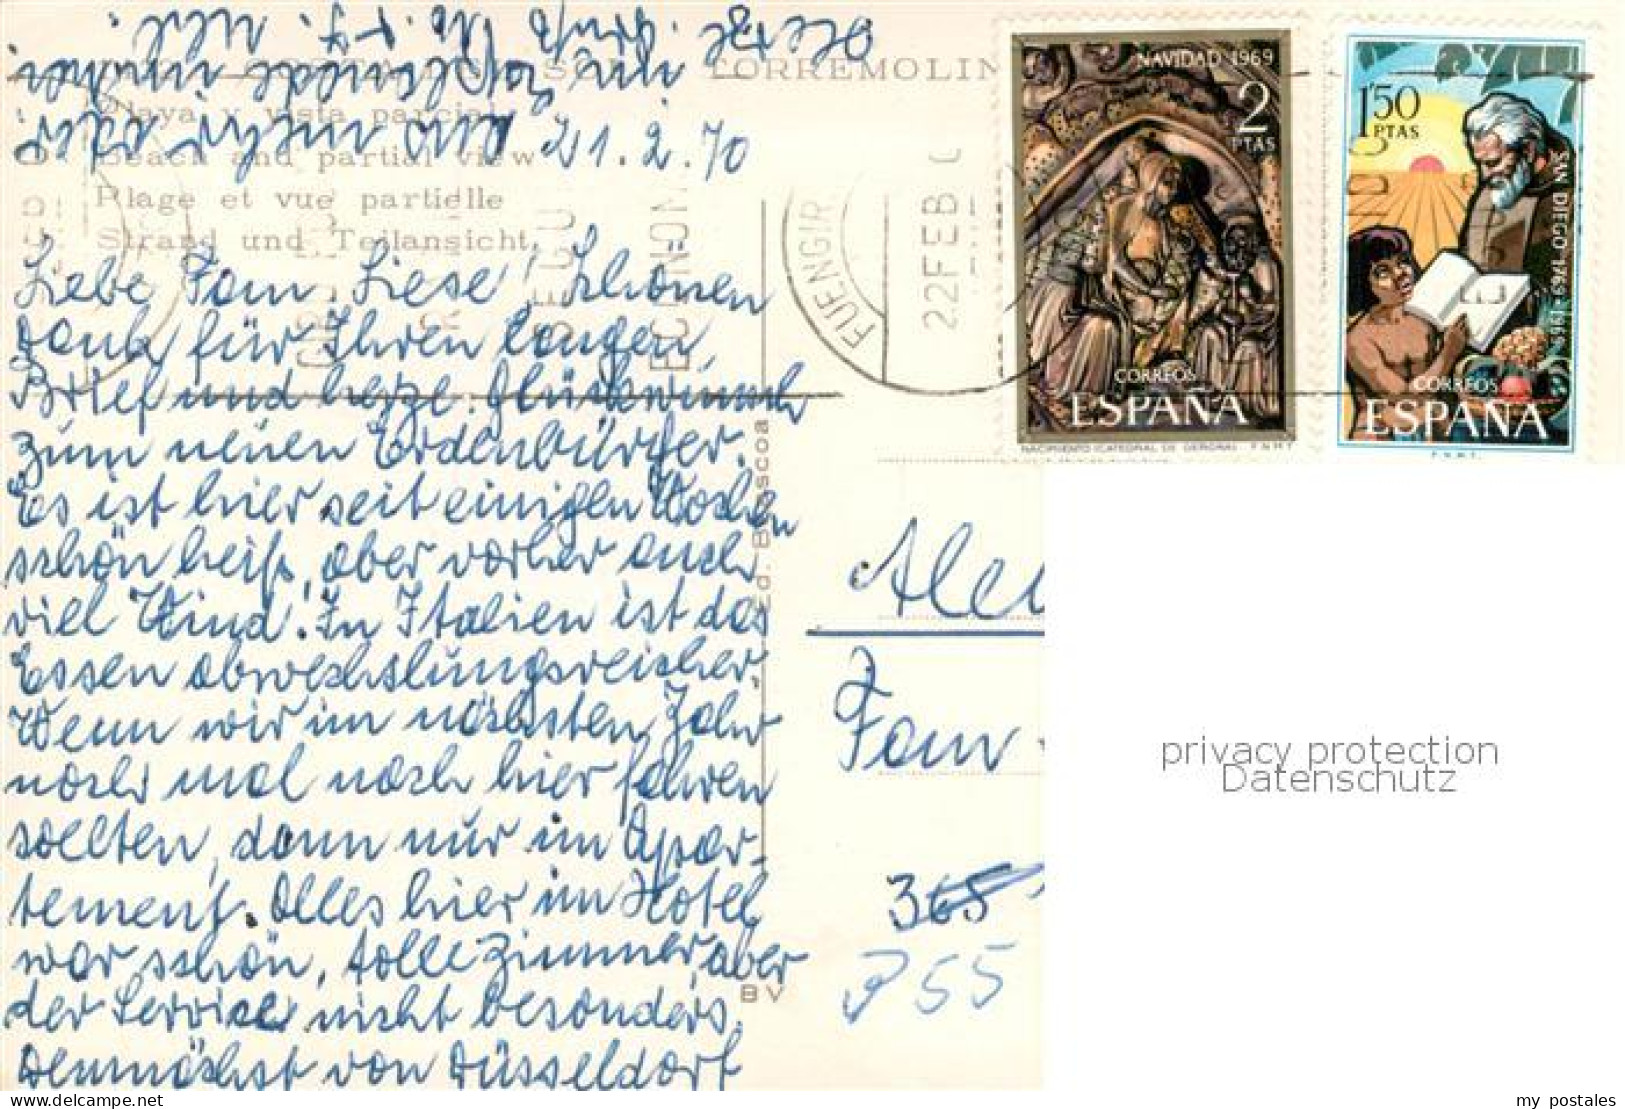 TORREMOLIN
Playa y vista parcial
Beach and partial view
Plage et vue partielle
Strand und Teilansicht
21.2.70
Liebe Fam. Liese! Schönen
Dank für Ihren langen
Brief und herze. Glückwunsch
zum neuen Erdenbürger.
Es ist hier seit einigen Wochen
schön heiß, aber vorher auch
viel Wind. In Italien ist das
Essen abwechslungsreicher.
Wenn wir im nächsten Jahr
noch mal nach hier fahren
sollten, dann nur im Apar-
tement. Alles hier im Hotel
war schön, tolle Zimmer, aber
der Service nicht besonders.
Demnächst von Düsseldorf
Ed. Bascoa
BV
FUENGIR
22 FEB
NAVIDAD 1969
2
PTAS
CORREOS
ESPAÑA
NACIMIENTO (CATEDRAL DE GERONA) F.N.M.T.
1'50
PTAS
SAN DIEGO 1769-1969
CORREOS
ESPAÑA
F.N.M.T.
Fam
365
355
privacy protection
Datenschutz
my postales